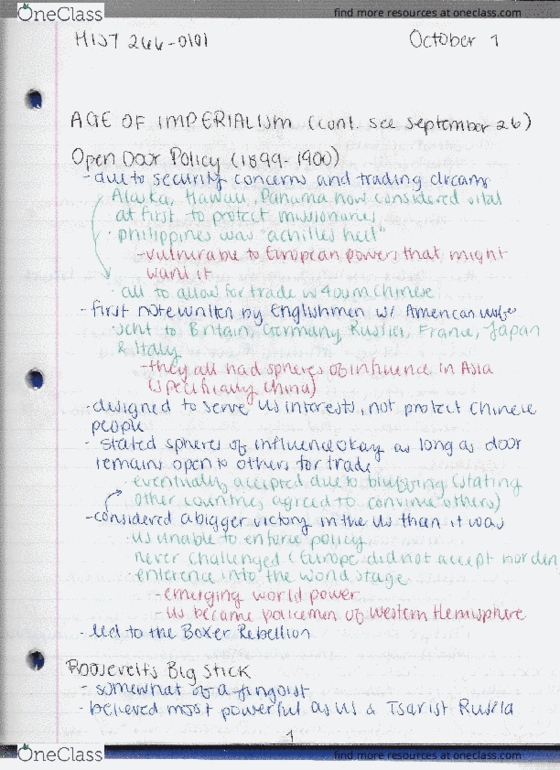 OneClass
find more resources at oneclass.com
HIST 266-0101
October 1
AGE OF IMPERIALISM (cont. see September 26)
Open Door Policy (1899-1900)
- due to security concerns and trading dreams
· Alaska, Hawaii, Panama now considered vital
at first to protect missionaries
· philippines was "achilles heel"
- vulnerable to European powers that might
want it
· all to allow for trade w 400m Chinese
- first note written by Englishmen w/ American wife
· sent to Britain, Germany, Russia, France, Japan
& Italy
- they all had spheres of influence in Asia
(specifically China)
- designed to serve US interests, not protect Chinese
people
- stated spheres of influence okay as long as door
remains open to others for trade
· eventually accepted due to bluffing (stating
other countries agreed to convince others)
- considered a bigger victory in the US than it was
· US unable to enforce policy
· never challenged (Europe did not accept nor deny
· enterence into the world stage
- emerging world power
- US became policemen of Western Hemisphere
- led to the Boxer Rebellion
Roosevelt's Big Stick
- somewhat of a jingoist
- believed most powerful as US & Tsarist Russia
1
OneClass
find more resources at oneclass.com